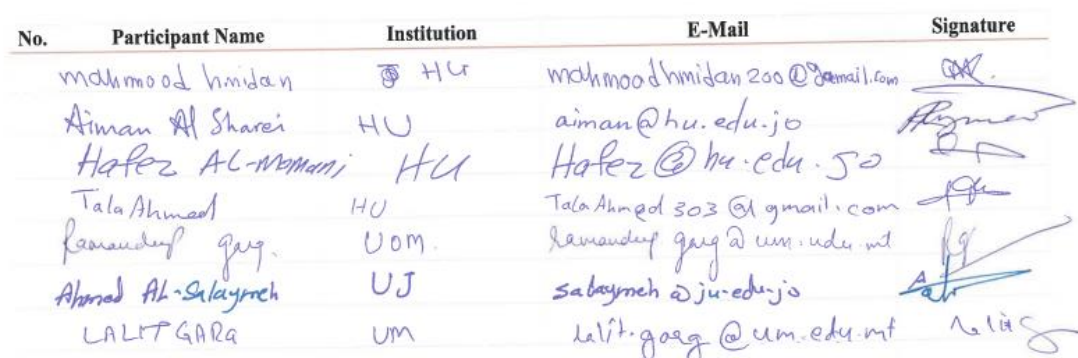 No. Participant Name Institution E-Mail Signature
mahmood hmidan HU mahmoodhmidan200@gmail.com
Aiman Al Sharei HU aiman@hu.edu.jo
Hafez AL-Momani HU Hafez@hu.edu.jo
Tala Ahmed HU TalaAhmed303@gmail.com
Ramandeep garg. UOM. ramandeep garg@um.edu.mt
Ahmed AL-Salaymeh UJ salaymeh@ju.edu.jo
LALIT GARG UM lalit.garg@um.edu.mt